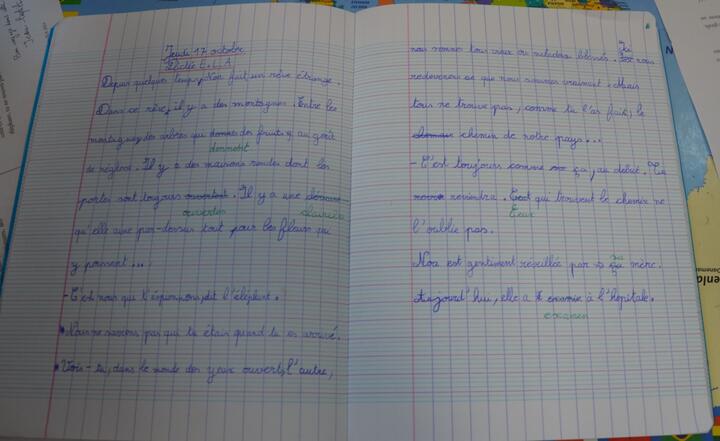 Jeudi 17 octobre
Dictée E.L.A
Depuis quelques temps, Noa fait un rêve étrange.
Dans ce rêve, il y a des montagnes. Entre les
montagnes, des arbres qui des fruits au goût
donnent
de réglisse. Il y a des maisons rondes dont les
portes sont toujours ouvertent. Il y a une
ouvertes clairière
qu'elle aime par-dessus tout pour les fleurs qui
y poussent...
- C'est nous qui t'espionnions, dit l'éléphant.
- Nous ne savions pas qui tu étais quand tu es arrivé.
- Vois-tu, dans le monde des yeux ouverts, l'autre,
nous sommes tous vieux ou malades, blessés. Ici nous
redevenons ce que nous sommes vraiment. Mais
tous ne trouve pas, comme tu l'as fait, le
chemin de notre pays...
- C'est toujours comme ça, au début. Tu
reviendra. qui trouvent le chemin ne
Ceux
l'oublie pas.
Noa est gentiment réveillée par sa mère.
Aujourd'hui, elle a à l'hôpitale.
examen